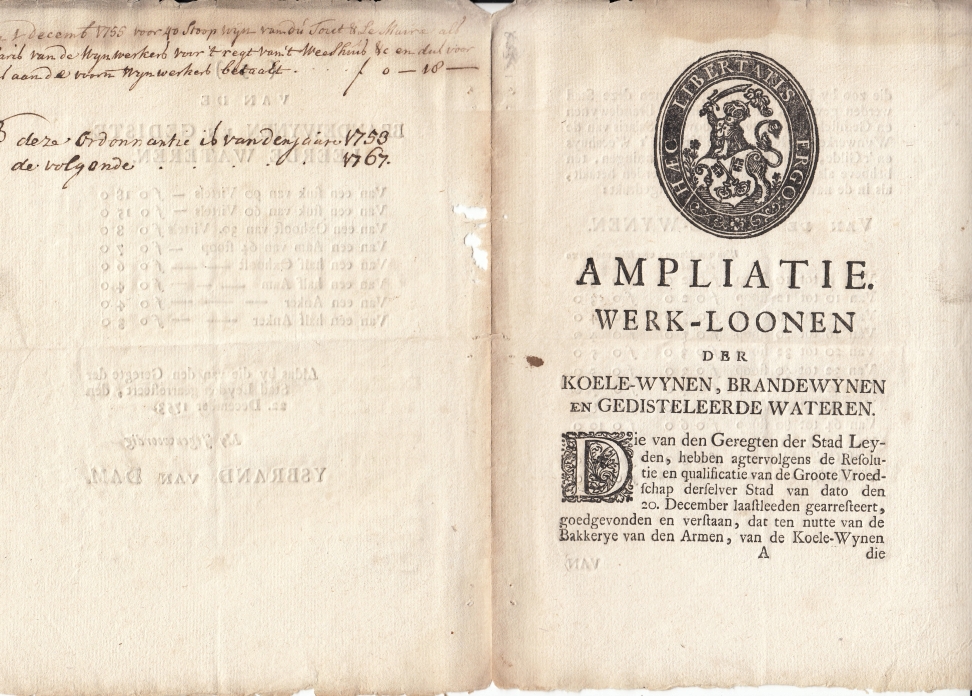 1 decemb 1755 voor 40 Stoop wijn van
van de Wynwerkers voor 't regt van 't Weeshuis &c en dul voor
aan de voorn Wynwerkers betaalt . . . . f 0 — 18 —
deze ordonnantie is van den jaare 1753
de volgende . . . . . 1767.
HÆC LIBERTATIS ERGO
AMPLIATIE.
WERK-LOONEN
DER
KOELE-WYNEN, BRANDEWYNEN
EN GEDISTELEERDE WATEREN.
Die van den Geregten der Stad Ley-
den, hebben agtervolgens de Resolu-
tie en qualificatie van de Groote Vroed-
schap derselver Stad van dato den
20. December laastleeden gearresteert,
goedgevonden en verstaan, dat ten nutte van de
Bakkerye van den Armen, van de Koele-Wynen
A die